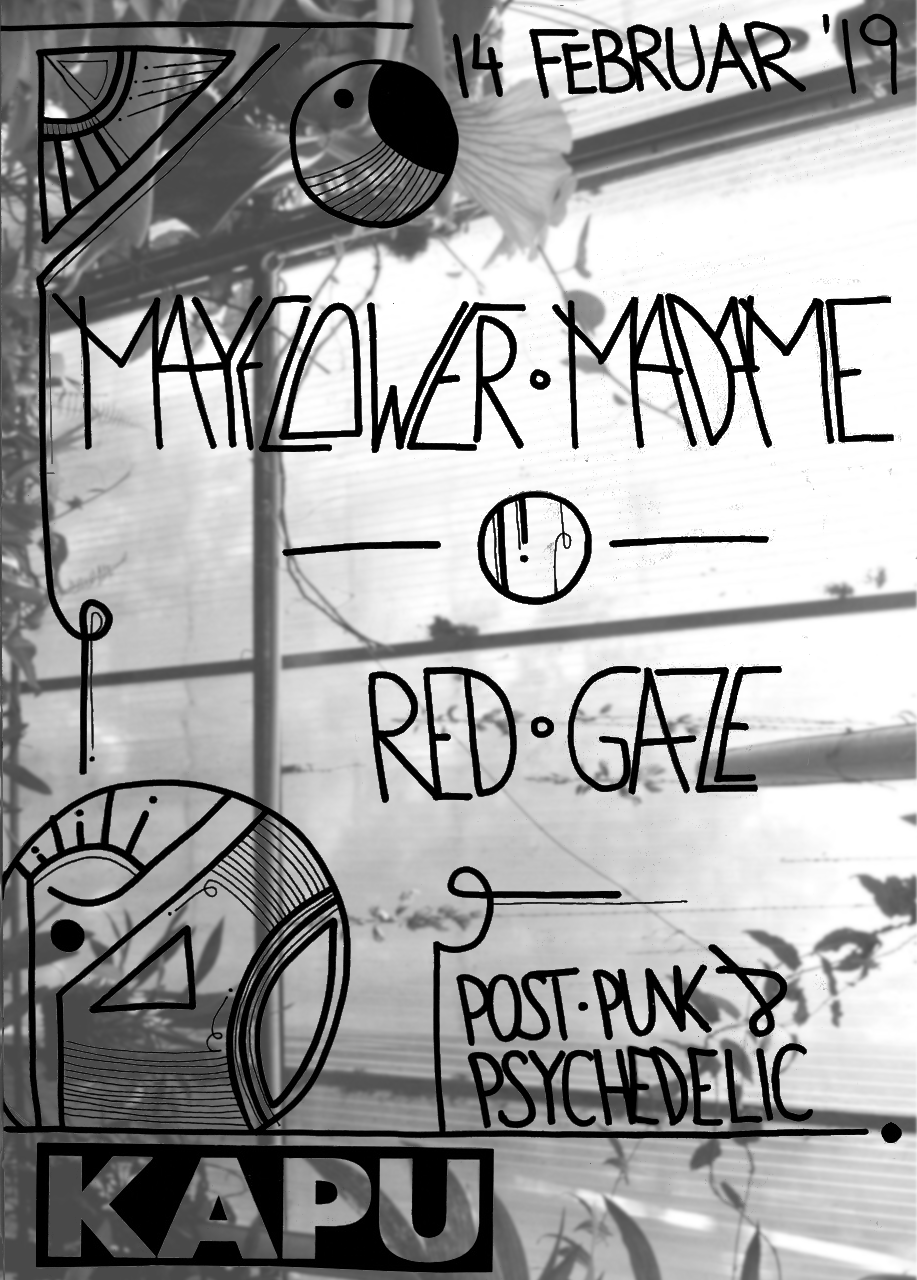 14 FEBRUAR '19
MAYFLOWER • MADAME
RED • GAZE
POST • PUNK &
PSYCHEDELIC
KAPU